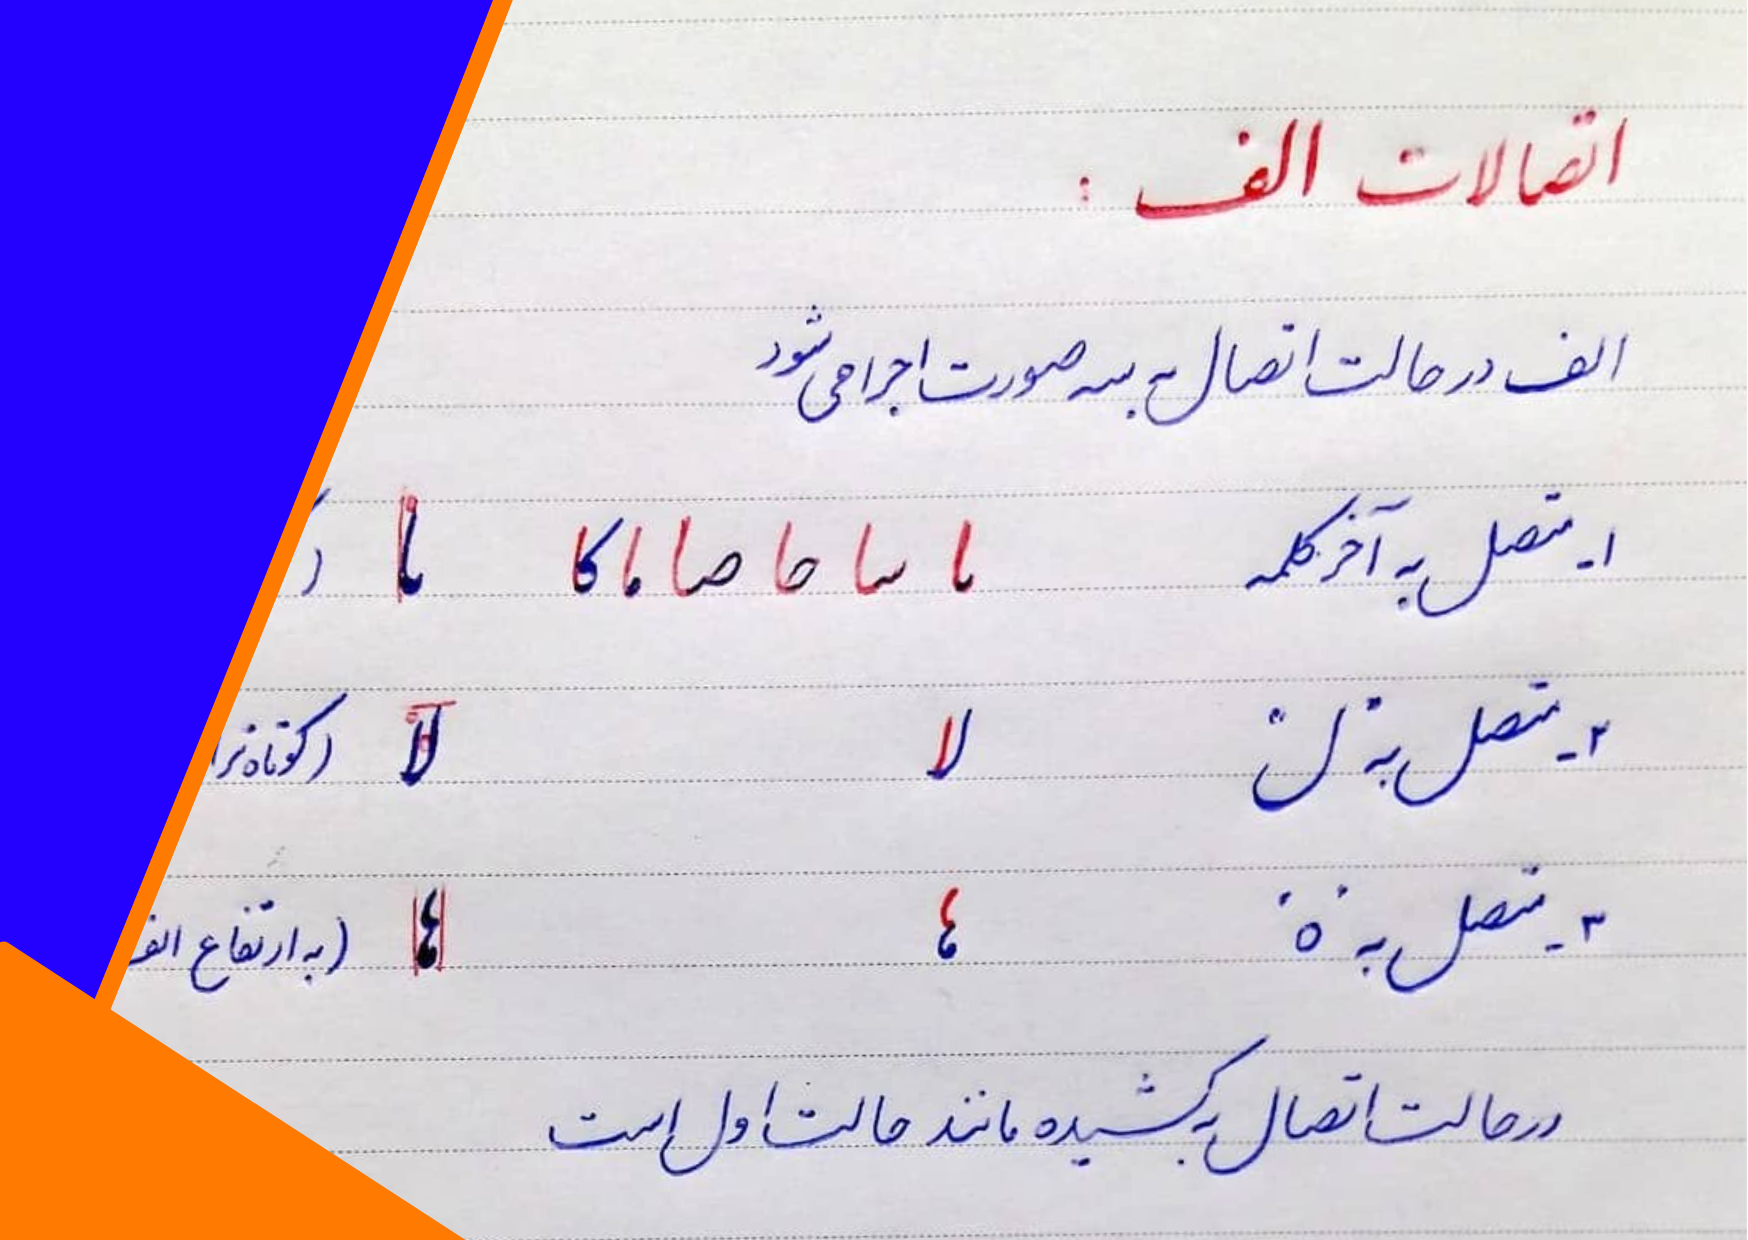 اتصالات الف :
الف در حالت اتصال به سه صورت اجرا می‌شود
۱ـ متصل به آخر کلمه ما سا حا صا ما کا ما (
۲ـ متصل به «ل» لا لا (کوتاه‌تر
۳ـ متصل به «ه» ها ها (به ارتفاع الف
در حالت اتصال به کشیده مانند حالت اول است